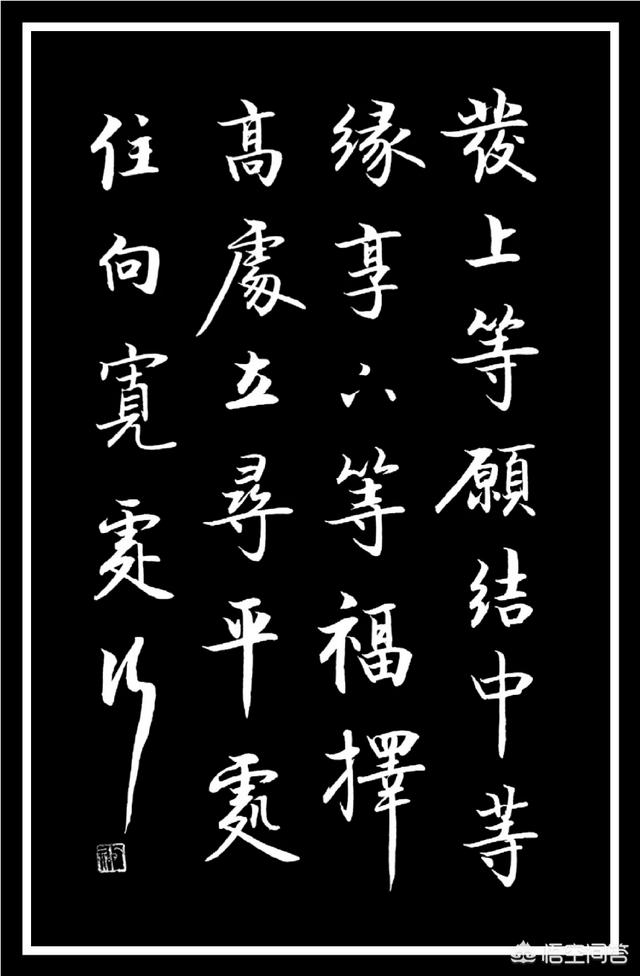 發上等願結中等
緣享下等福擇
高處立尋平處
住向寬處行
悟空问答